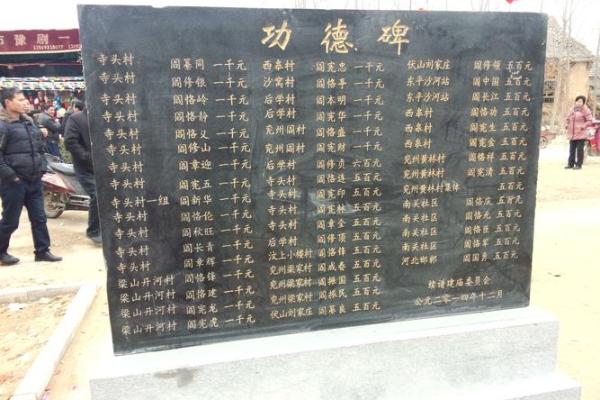 功德碑
寺头村 阎纂同 一千元
寺头村 阎修银 一千元
寺头村 阎恪岭 一千元
寺头村 阎恪静 一千元
寺头村 阎恪义 一千元
寺头村 阎修山 一千元
寺头村 阎章迎 一千元
寺头村 阎宪五 一千元
寺头村一组 阎新华 一千元
寺头村 阎恪伦 一千元
寺头村 阎秋旺 一千元
寺头村 阎长青 一千元
寺头村 阎章辉 一千元
梁山开河村 阎恪锋 一千元
梁山开河村 阎恪建 一千元
梁山开河村 阎宪龙 一千元
梁山开河村 阎宪虎 一千元
西泰村 阎宪忠 一千元
沙窝村 阎恪亭 一千元
后学村 阎本明 一千元
后学村 阎宪华 一千元
兖州阎村 阎恪盛 一千元
兖州阎村 阎宪财 一千元
后学村 阎修贞 六百元
寺头村 阎恪进 五百元
寺头村 阎宪印 五百元
寺头村 阎宪林 五百元
寺头村 阎章全 五百元
后学村 阎修顶 五百元
汶上小楼村 阎恪锋 五百元
兖州梁家村 阎成春 五百元
兖州梁家村 阎振国 五百元
兖州梁家村 阎振民 五百元
伏山刘家庄 阎纂良 五百元
伏山刘家庄 阎修领 五百元
东平沙河站 阎中国 五百元
东平沙河站 阎长江 五百元
西泰村 阎恪功 五百元
西泰村 阎宪生 五百元
西泰村 阎宪金 五百元
兖州黄林村 阎恪祥 五百元
兖州黄林村 阎宪清 五百元
兖州黄林村集体 五百元
南关社区 阎恪庄 五百元
南关社区 阎恪元 五百元
南关社区 阎恪臣 五百元
南关社区 阎恪军 五百元
河北邯郸 阎国勇 五百元
续谱建庙委员会
公元二零一四年十二月